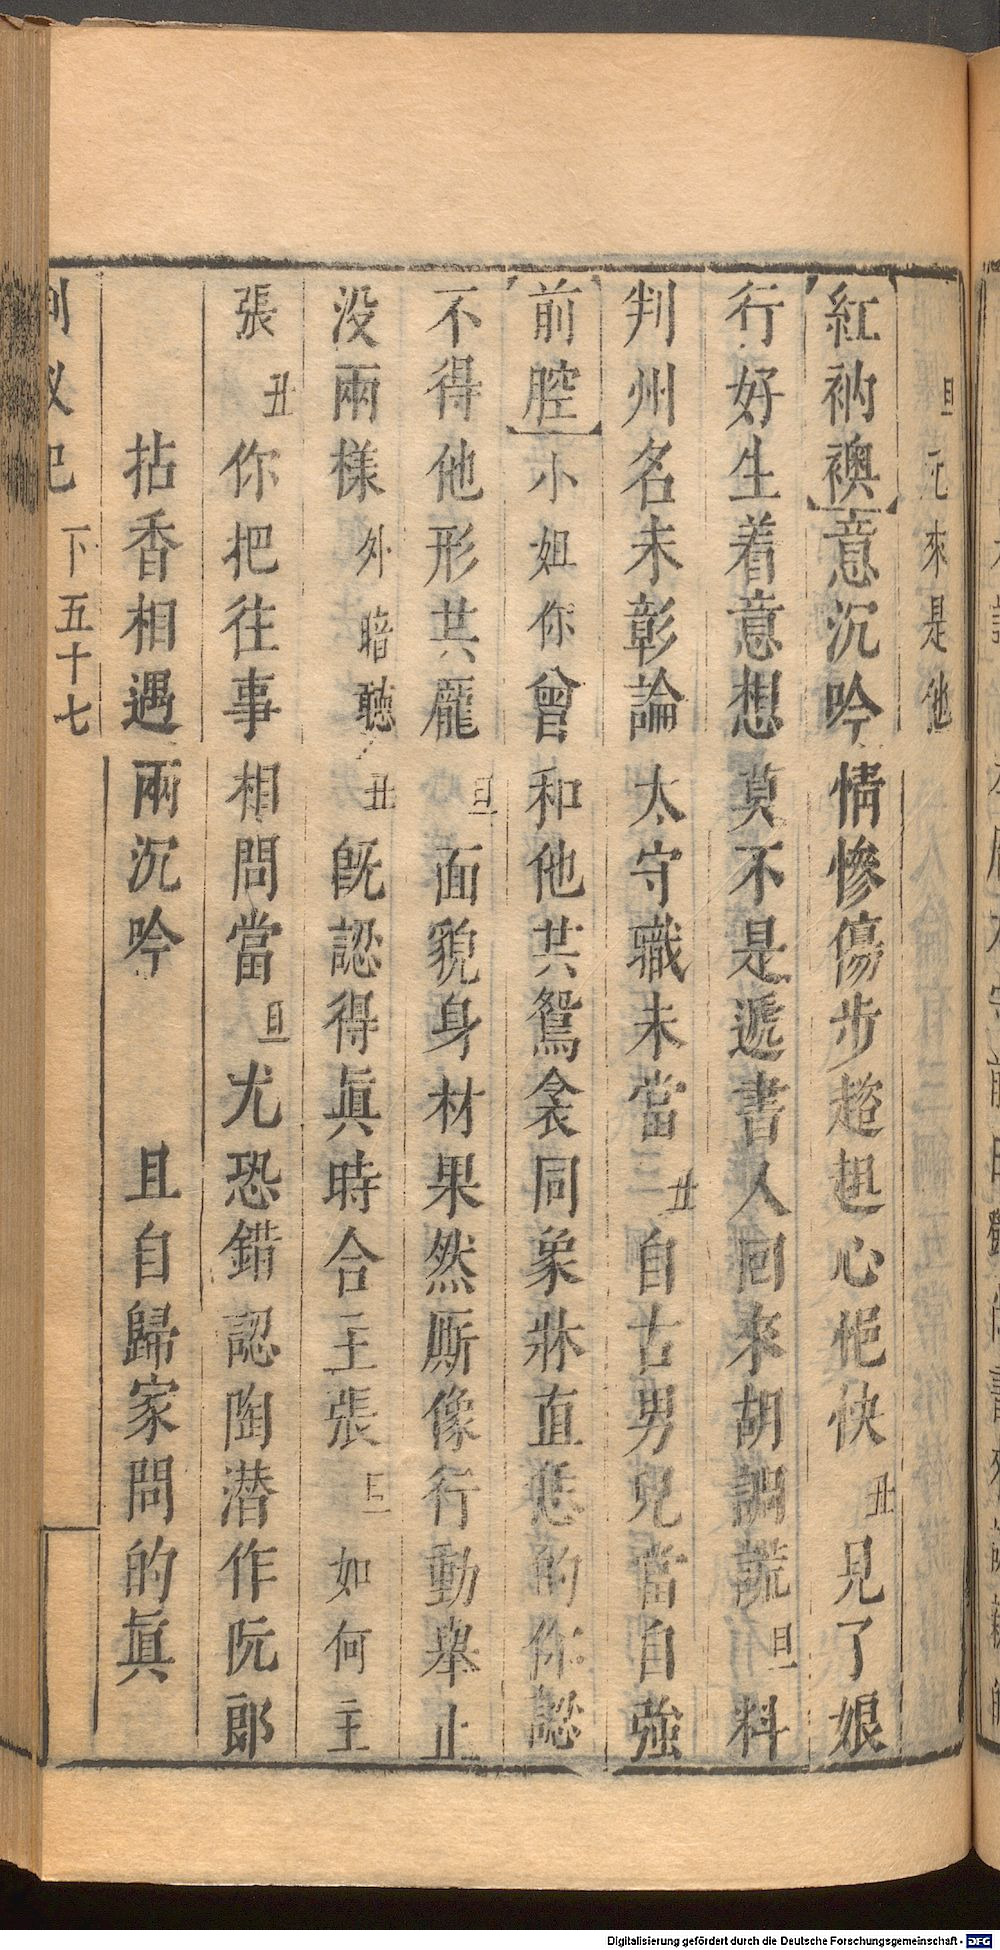 旦元來是他
紅衲襖意沉吟情慘傷步趑趄心怏丑見了娘
行好生着意想莫不是遞書人回來胡調謊旦料
判州名未彰論太守職未當丑自古男兒當自強
前腔小姐你曾和他共鴛衾同象牀直恁的你認
不得他形共龐旦面貌身材果然厮像行動舉止
没兩樣外暗聽丑既認得眞時合主張旦如何主
張丑你把往事相問當旦尤恐錯認陶潜作阮郎
拈香相遇兩沉吟 且自歸家問的眞
下五十七
Digitalisierung gefördert durch die Deutsche Forschungsgemeinschaft - DFG